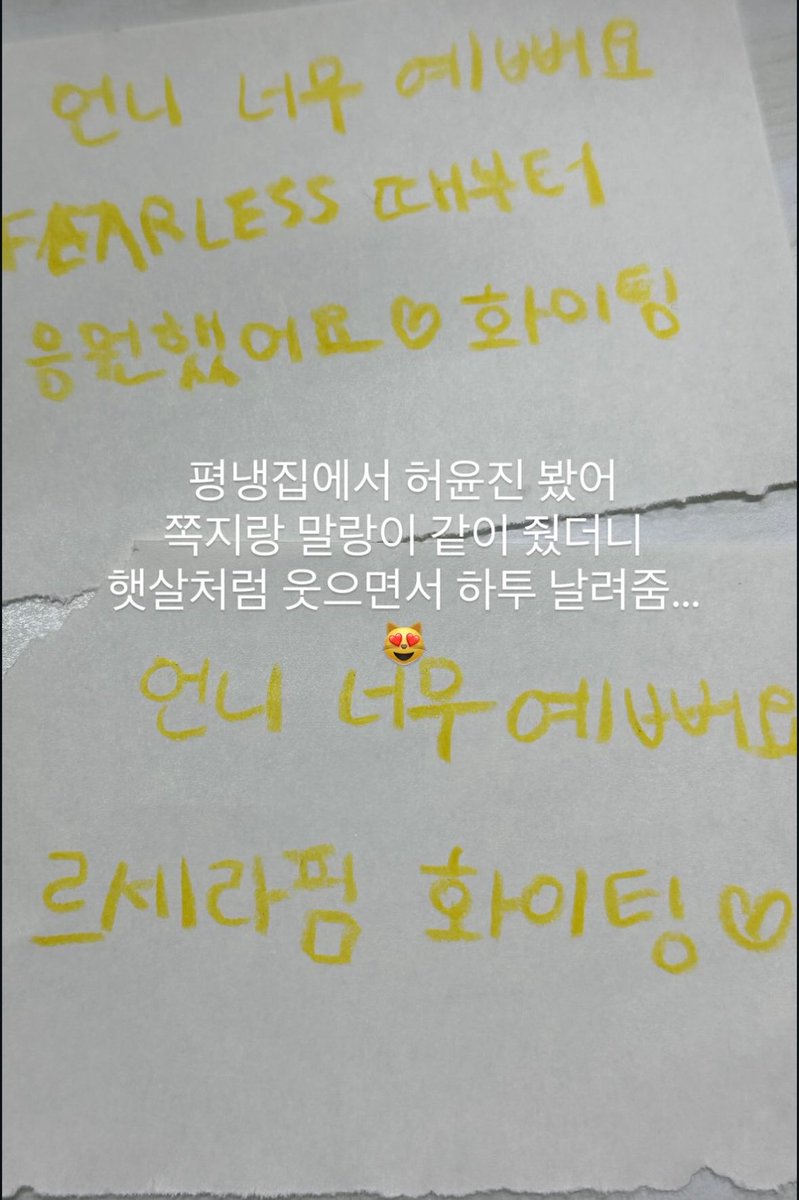 언니 너무 예뻐요
FEARLESS 때부터
응원했어요♡ 화이팅
평냉집에서 허윤진 봤어
쪽지랑 말랑이 같이 줬더니
햇살처럼 웃으면서 하투 날려줌...
😻
언니 너무 예뻐요
르세라핌 화이팅♡